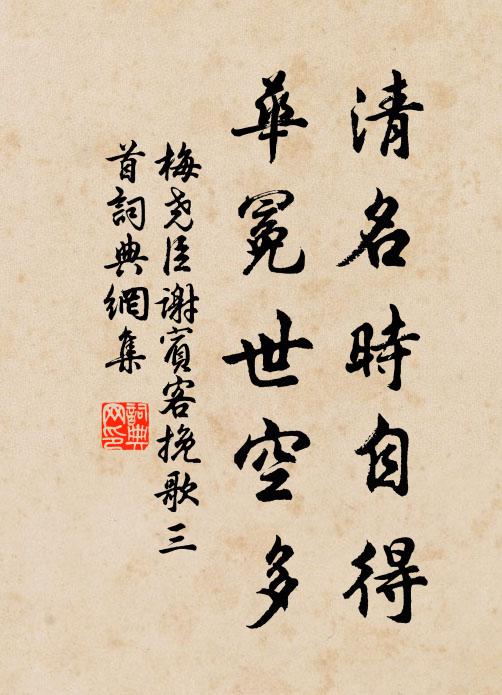 清名時自得
華冕世空多
梅堯臣謝賓客挽歌三
首詞典網集
詞典
网印